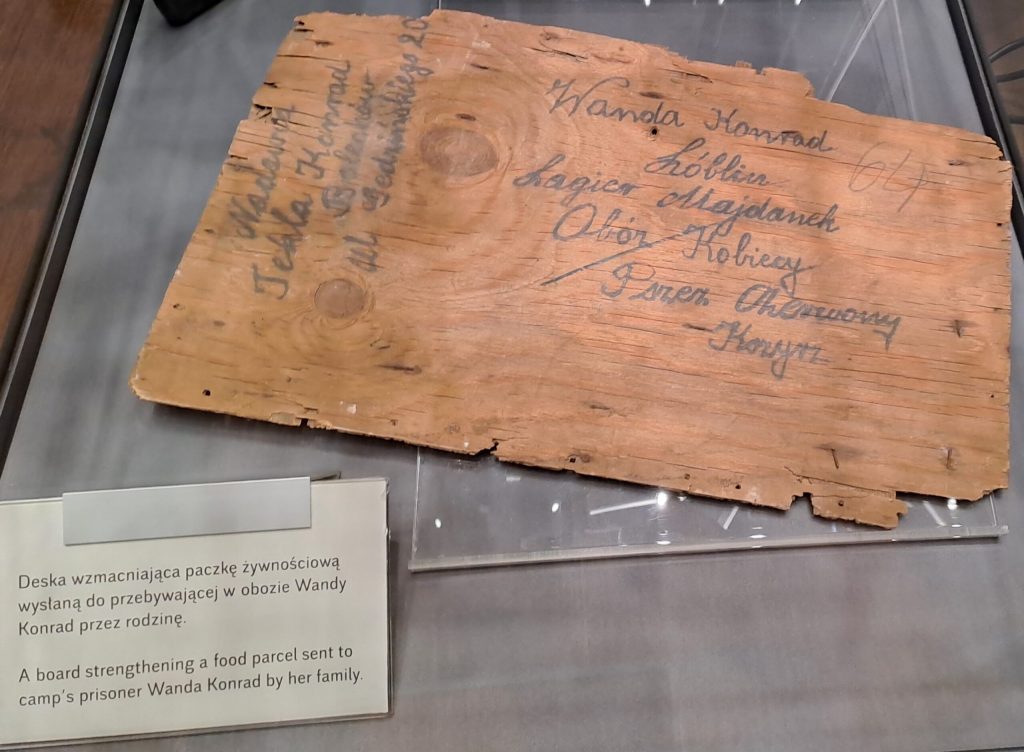 Wanda Konrad
Lóblin
Łagier Majdanek
Obóz Kobiecy
Przez Czerwony
Krzyż
64
Nadawca
Tekla Konrad
Ul Bedzińskiego 20
Deska wzmacniająca paczkę żywnościową
wysłaną do przebywającej w obozie Wandy
Konrad przez rodzinę.
A board strengthening a food parcel sent to
camp's prisoner Wanda Konrad by her family.